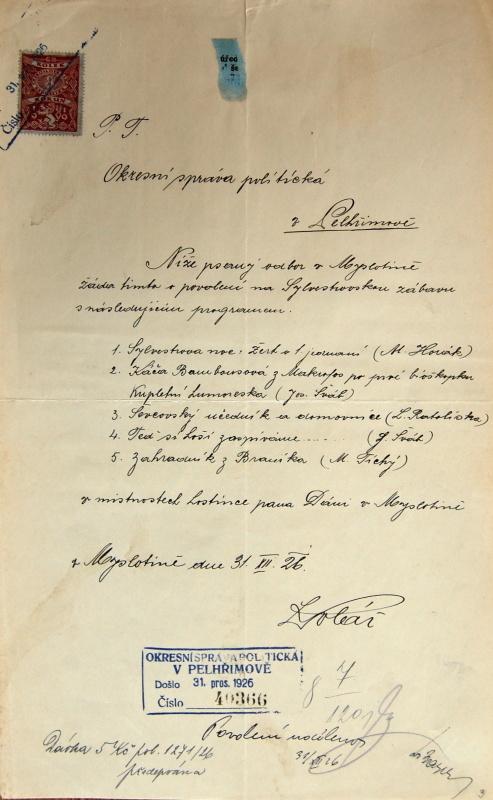 31. 1926
KOLEK
Číslo
úřed
še
P. T.
Okresní správa politická
v Pelhřimově
Níže psaný odbor v Myslotíně
žádá tímto o povolení na Sylvestrovskou zábavu
s následujícím programem.
1. Sylvestrova noc: Žert o 1 jednání (M. Horák)
2. Káča Bambousová z Makrofos po prvé bioskopku
Kupletní humoreska (Jos. Šváb)
3. Ševcovský učedník a domovnice (L. Ratolíska)
4. Teď si hoši zazpíváme ........ (J. Šváb)
5. Zahradník z Braníka (M. Tichý)
v místnostech hostince pana Dáni v Myslotíně
v Myslotíně dne 31. XII. 26.
OKRESNÍ SPRÁVA POLITICKÁ
V PELHŘIMOVĚ
Došlo 31. pros. 1926
Číslo 40366
8 7
120
Povolení uděleno
31/XII 26
Dávka 5 Kč pol. 1271/26
předepsána
3